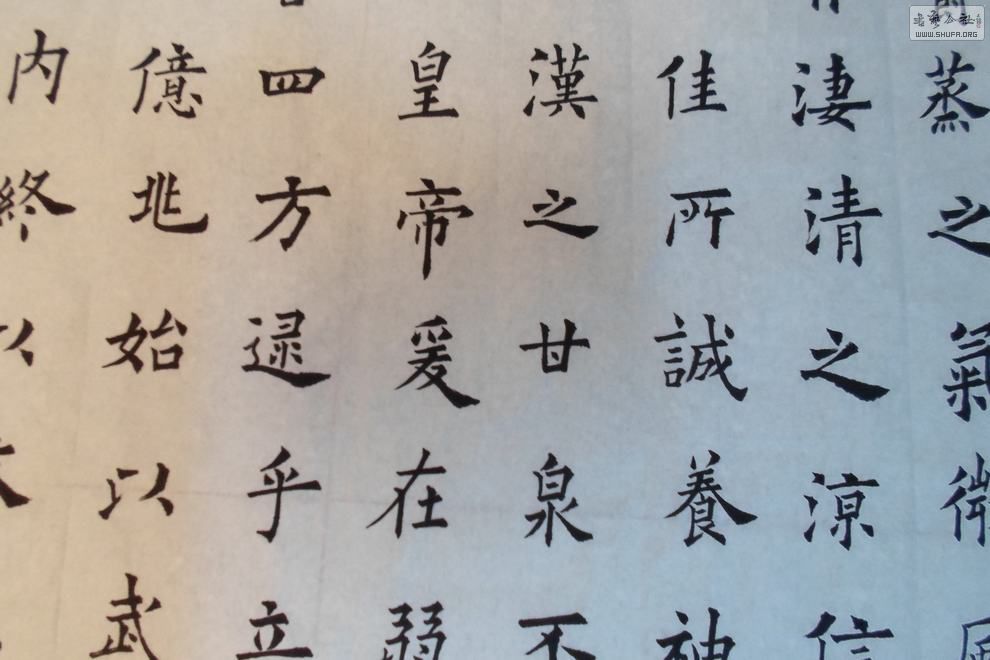 蒸之氣微
淒清之涼信
佳所誠養神
漢之甘泉不
皇帝爰在弱
四方逮乎立
億兆始以武
内終以
公社
WWW.SHUFA.ORG